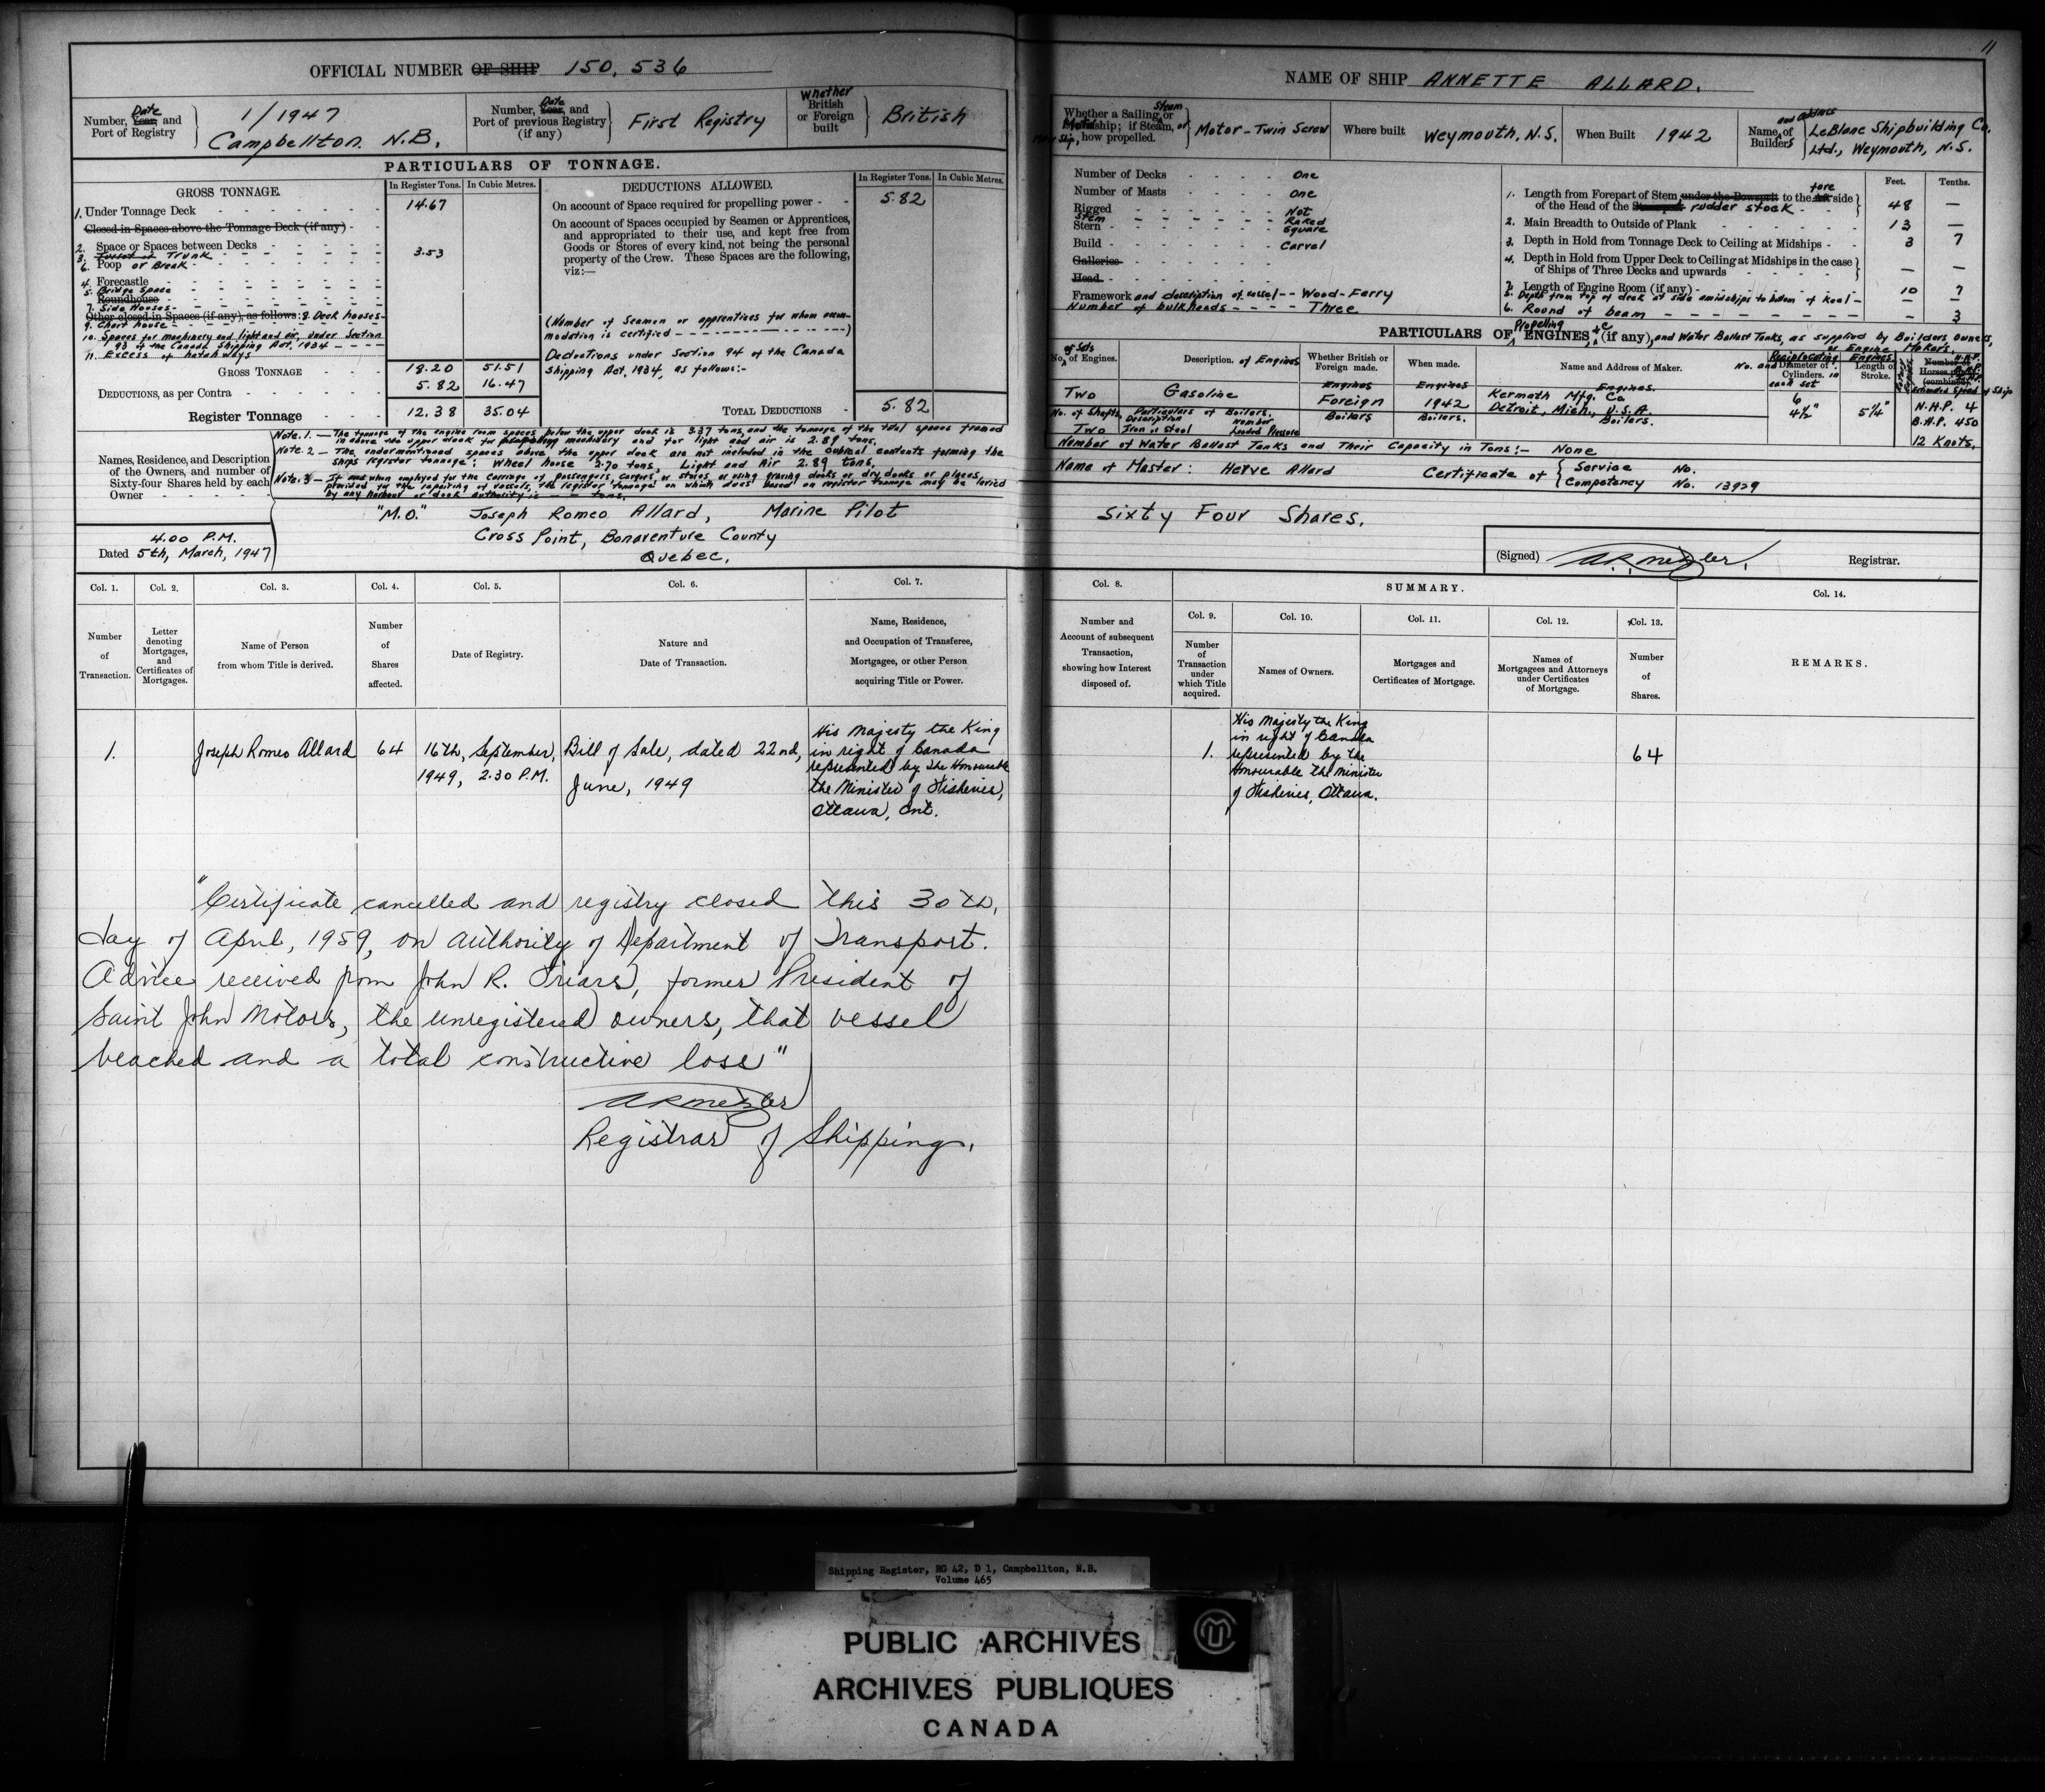 11
OFFICIAL NUMBER OF SHIP 150,536
Number, Year, Date and
Port of Registry
1/1947
Campbellton. N.B.
Number, Year, Date and
Port of previous Registry
(if any)
First Registry
Whether
British
or Foreign
built
British
PARTICULARS OF TONNAGE.
GROSS TONNAGE.
In Register Tons. In Cubic Metres.
1. Under Tonnage Deck 14.67
Closed in Spaces above the Tonnage Deck (if any)
2. Space or Spaces between Decks
3. Turret or Trunk 3.53
6. Poop or Break
4. Forecastle
5. Bridge Space
Roundhouse
7. Side Houses
Other closed in Spaces (if any), as follows: 8. Deck houses
9. Chart house
10. Spaces for machinery and light and air, under Section
93 of the Canada Shipping Act, 1934
11. Excess of hatchways
GROSS TONNAGE 18.20 51.51
DEDUCTIONS, as per Contra 5.82 16.47
Register Tonnage 12.38 35.04
DEDUCTIONS ALLOWED.
In Register Tons. In Cubic Metres.
On account of Space required for propelling power 5.82
On account of Spaces occupied by Seamen or Apprentices,
and appropriated to their use, and kept free from
Goods or Stores of every kind, not being the personal
property of the Crew. These Spaces are the following,
viz:—
(Number of Seamen or apprentices for whom accom-
modation is certified)
Deductions under Section 94 of the Canada
Shipping Act, 1934, as follows:-
TOTAL DEDUCTIONS 5.82
Note.1.— The tonnage of the engine room spaces below the upper deck is 3.37 tons, and the tonnage of the total spaces framed
in above the upper deck for propelling machinery and for light and air is 2.89 tons.
Note.2— The undermentioned spaces above the upper deck are not included in the cubical contents forming the
ships register tonnage: Wheel house 2.70 tons, Light and Air 2.89 tons.
Note.3— If and when employed for the carriage of passengers, cargoes, or stores, or using graving docks or dry docks or places,
provided for the repairing of vessels, the register tonnage on which dues based on register tonnage may be levied
by any harbour or dock authority is — — tons.
Names, Residence, and Description
of the Owners, and number of
Sixty-four Shares held by each
Owner
"M.O." Joseph Romeo Allard, Marine Pilot
Cross Point, Bonaventure County
Quebec.
4.00 P.M.
Dated 5th, March, 1947
Col. 1. Col. 2. Col. 3. Col. 4. Col. 5. Col. 6. Col. 7.
Number
of
Transaction.
Letter
denoting
Mortgages,
and
Certificates of
Mortgages.
Name of Person
from whom Title is derived.
Number
of
Shares
affected.
Date of Registry.
Nature and
Date of Transaction.
Name, Residence,
and Occupation of Transferee,
Mortgagee, or other Person
acquiring Title or Power.
1. Joseph Romeo Allard 64
16th, September,
1949, 2.30 P.M.
Bill of Sale, dated 22nd,
June, 1949
His Majesty the King
in right of Canada
represented by the Honourable
the Minister of Fisheries,
Ottawa, Ont.
"Certificate cancelled and registry closed this 30th,
day of April, 1959, on authority of Department of Transport.
Advice received from John R. Friars, former President of
Saint John Motors, the unregistered owners, that vessel
beached and a total constructive loss"
Registrar of Shipping.
NAME OF SHIP ANNETTE ALLARD.
Whether a Sailing, Steam or
Motor ship; if Steam, or
Motor Ship, how propelled.
Motor-Twin Screw
Where built
Weymouth, N.S.
When Built 1942
Name and address of
Builders
LeBlanc Shipbuilding Co.
Ltd., Weymouth, N.S.
Number of Decks One
Number of Masts One
Rigged Not
Stem Raked
Stern Square
Build Carvel
Galleries
Head
Framework and description of vessel -- Wood-Ferry
Number of bulkheads Three
Feet. Tenths.
1. Length from Forepart of Stem under the Bowsprit to the fore side
of the Head of the rudder stock 48 —
2. Main Breadth to Outside of Plank 13 —
3. Depth in Hold from Tonnage Deck to Ceiling at Midships 3 7
4. Depth in Hold from Upper Deck to Ceiling at Midships in the case
of Ships of Three Decks and upwards — —
7. Length of Engine Room (if any) 10 7
5. Depth from top of deck at side amidships to bottom of keel — —
6. Round of beam — 3
PARTICULARS OF Propelling ENGINES, &c (if any), and Water Ballast Tanks, as supplied by Builders, Owners,
or Engine Makers.
No. of Sets of Engines.
Description. of Engines
Whether British or
Foreign made.
When made.
Name and Address of Maker.
Reciprocating Engines
No. and Diameter of
Cylinders. in
each set
Length of
Stroke.
Estimated Speed of Ship
Two Gasoline
Engines
Foreign
Engines
1942
Engines.
Kermath Mfg. Co
Detroit, Mich., U.S.A.
6
4½" 5¼"
N.H.P. 4
B.H.P. 450
12 Knots.
No. of Shafts.
Two
Particulars of Boilers.
Description Number
Iron or Steel Loaded Pressure
Boilers Boilers. Boilers.
Number of Water Ballast Tanks and Their Capacity in Tons:- None
Name of Master: Herve Allard Certificate of
Service No.
Competency No. 13929
Sixty Four Shares.
(Signed) Registrar.
Col. 8. SUMMARY. Col. 14.
Col. 9. Col. 10. Col. 11. Col. 12. Col. 13.
Number and
Account of subsequent
Transaction,
showing how Interest
disposed of.
Number
of
Transaction
under
which Title
acquired.
Names of Owners.
Mortgages and
Certificates of Mortgage.
Names of
Mortgagees and Attorneys
under Certificates
of Mortgage.
Number
of
Shares.
REMARKS.
1.
His Majesty the King
in right of Canada
represented by the
Honourable the Minister
of Fisheries, Ottawa.
64
Shipping Register, RG 42, D 1, Campbellton, N.B.
Volume 465
PUBLIC ARCHIVES
ARCHIVES PUBLIQUES
CANADA